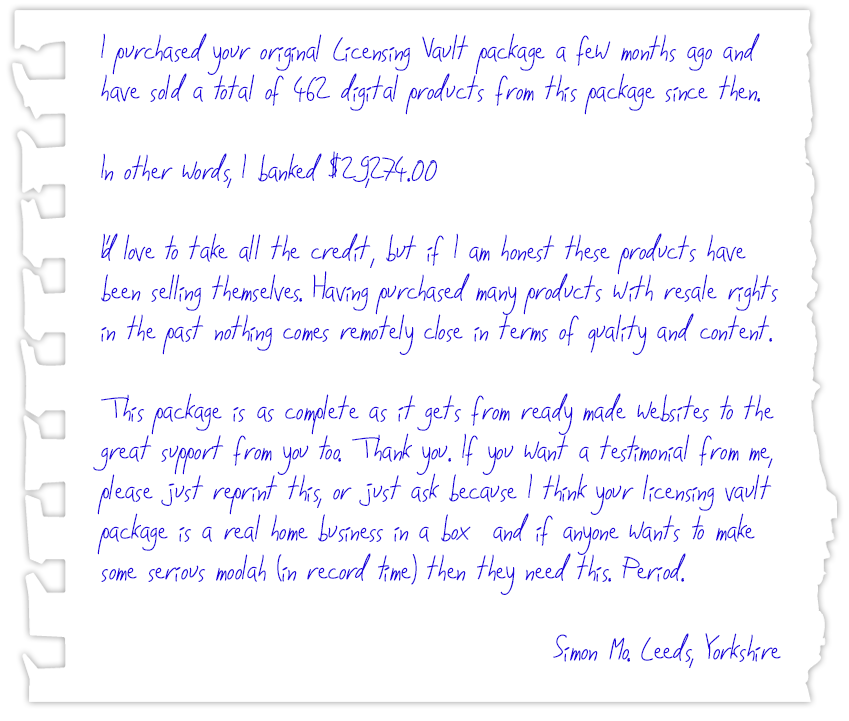 I purchased your original Licensing Vault package a few months ago and
have sold a total of 462 digital products from this package since then.
In other words, I banked $29,274.00
I'd love to take all the credit, but if I am honest these products have
been selling themselves. Having purchased many products with resale rights
in the past nothing comes remotely close in terms of quality and content.
This package is as complete as it gets from ready made websites to the
great support from you too. Thank you. If you want a testimonial from me,
please just reprint this, or just ask because I think your licensing vault
package is a real home business in a box and if anyone wants to make
some serious moolah (in record time) then they need this. Period.
Simon Mo. Leeds, Yorkshire